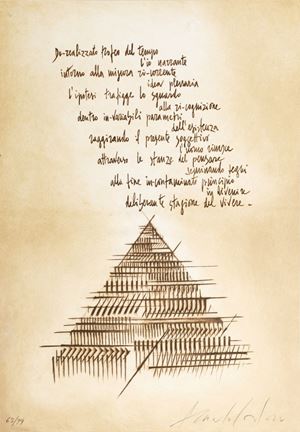 De-realizzato trofeo del tempo
l'io narrante
intorno alla misura ri-corrente
idea plenaria
l'ipotesi trafigge lo sguardo
alla ri-cognizione
dentro in-variabili parametri
dell'esistenza
raggirando il presente soggettivo
l'uomo
attraverso le stanze del pensare
seminando segni
alla fine in-contaminato principio
in divenire
deliberante stagione del vivere -